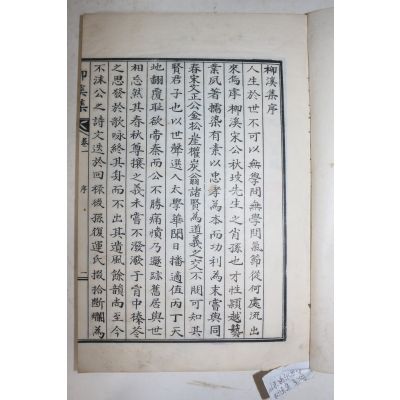 柳溪集序
人生於世不可以無學問無學問氣節從何處流出
來焉序柳溪宋公秋坡先生之肖孫也才性穎越藝
業夙著擩染有素以忠孝為本而功利為末嘗與同
春宋文正公金松崖權炭翁諸賢為道義之交不問可知其
賢君子也以世聲選入太學華聞日播適值丙丁天
地翻覆耻欲帝秦而公不勝痛憤乃遯跡舊居與世
相忘然其春秋尊攘之義未嘗不潑潑于胷中榛苓
之思發於歌咏終其身而不出其遺風餘韻尚至今
不沫公之詩文迭於回祿後孫復運氏掇拾斷爛為
柳溪集
卷一
序
二